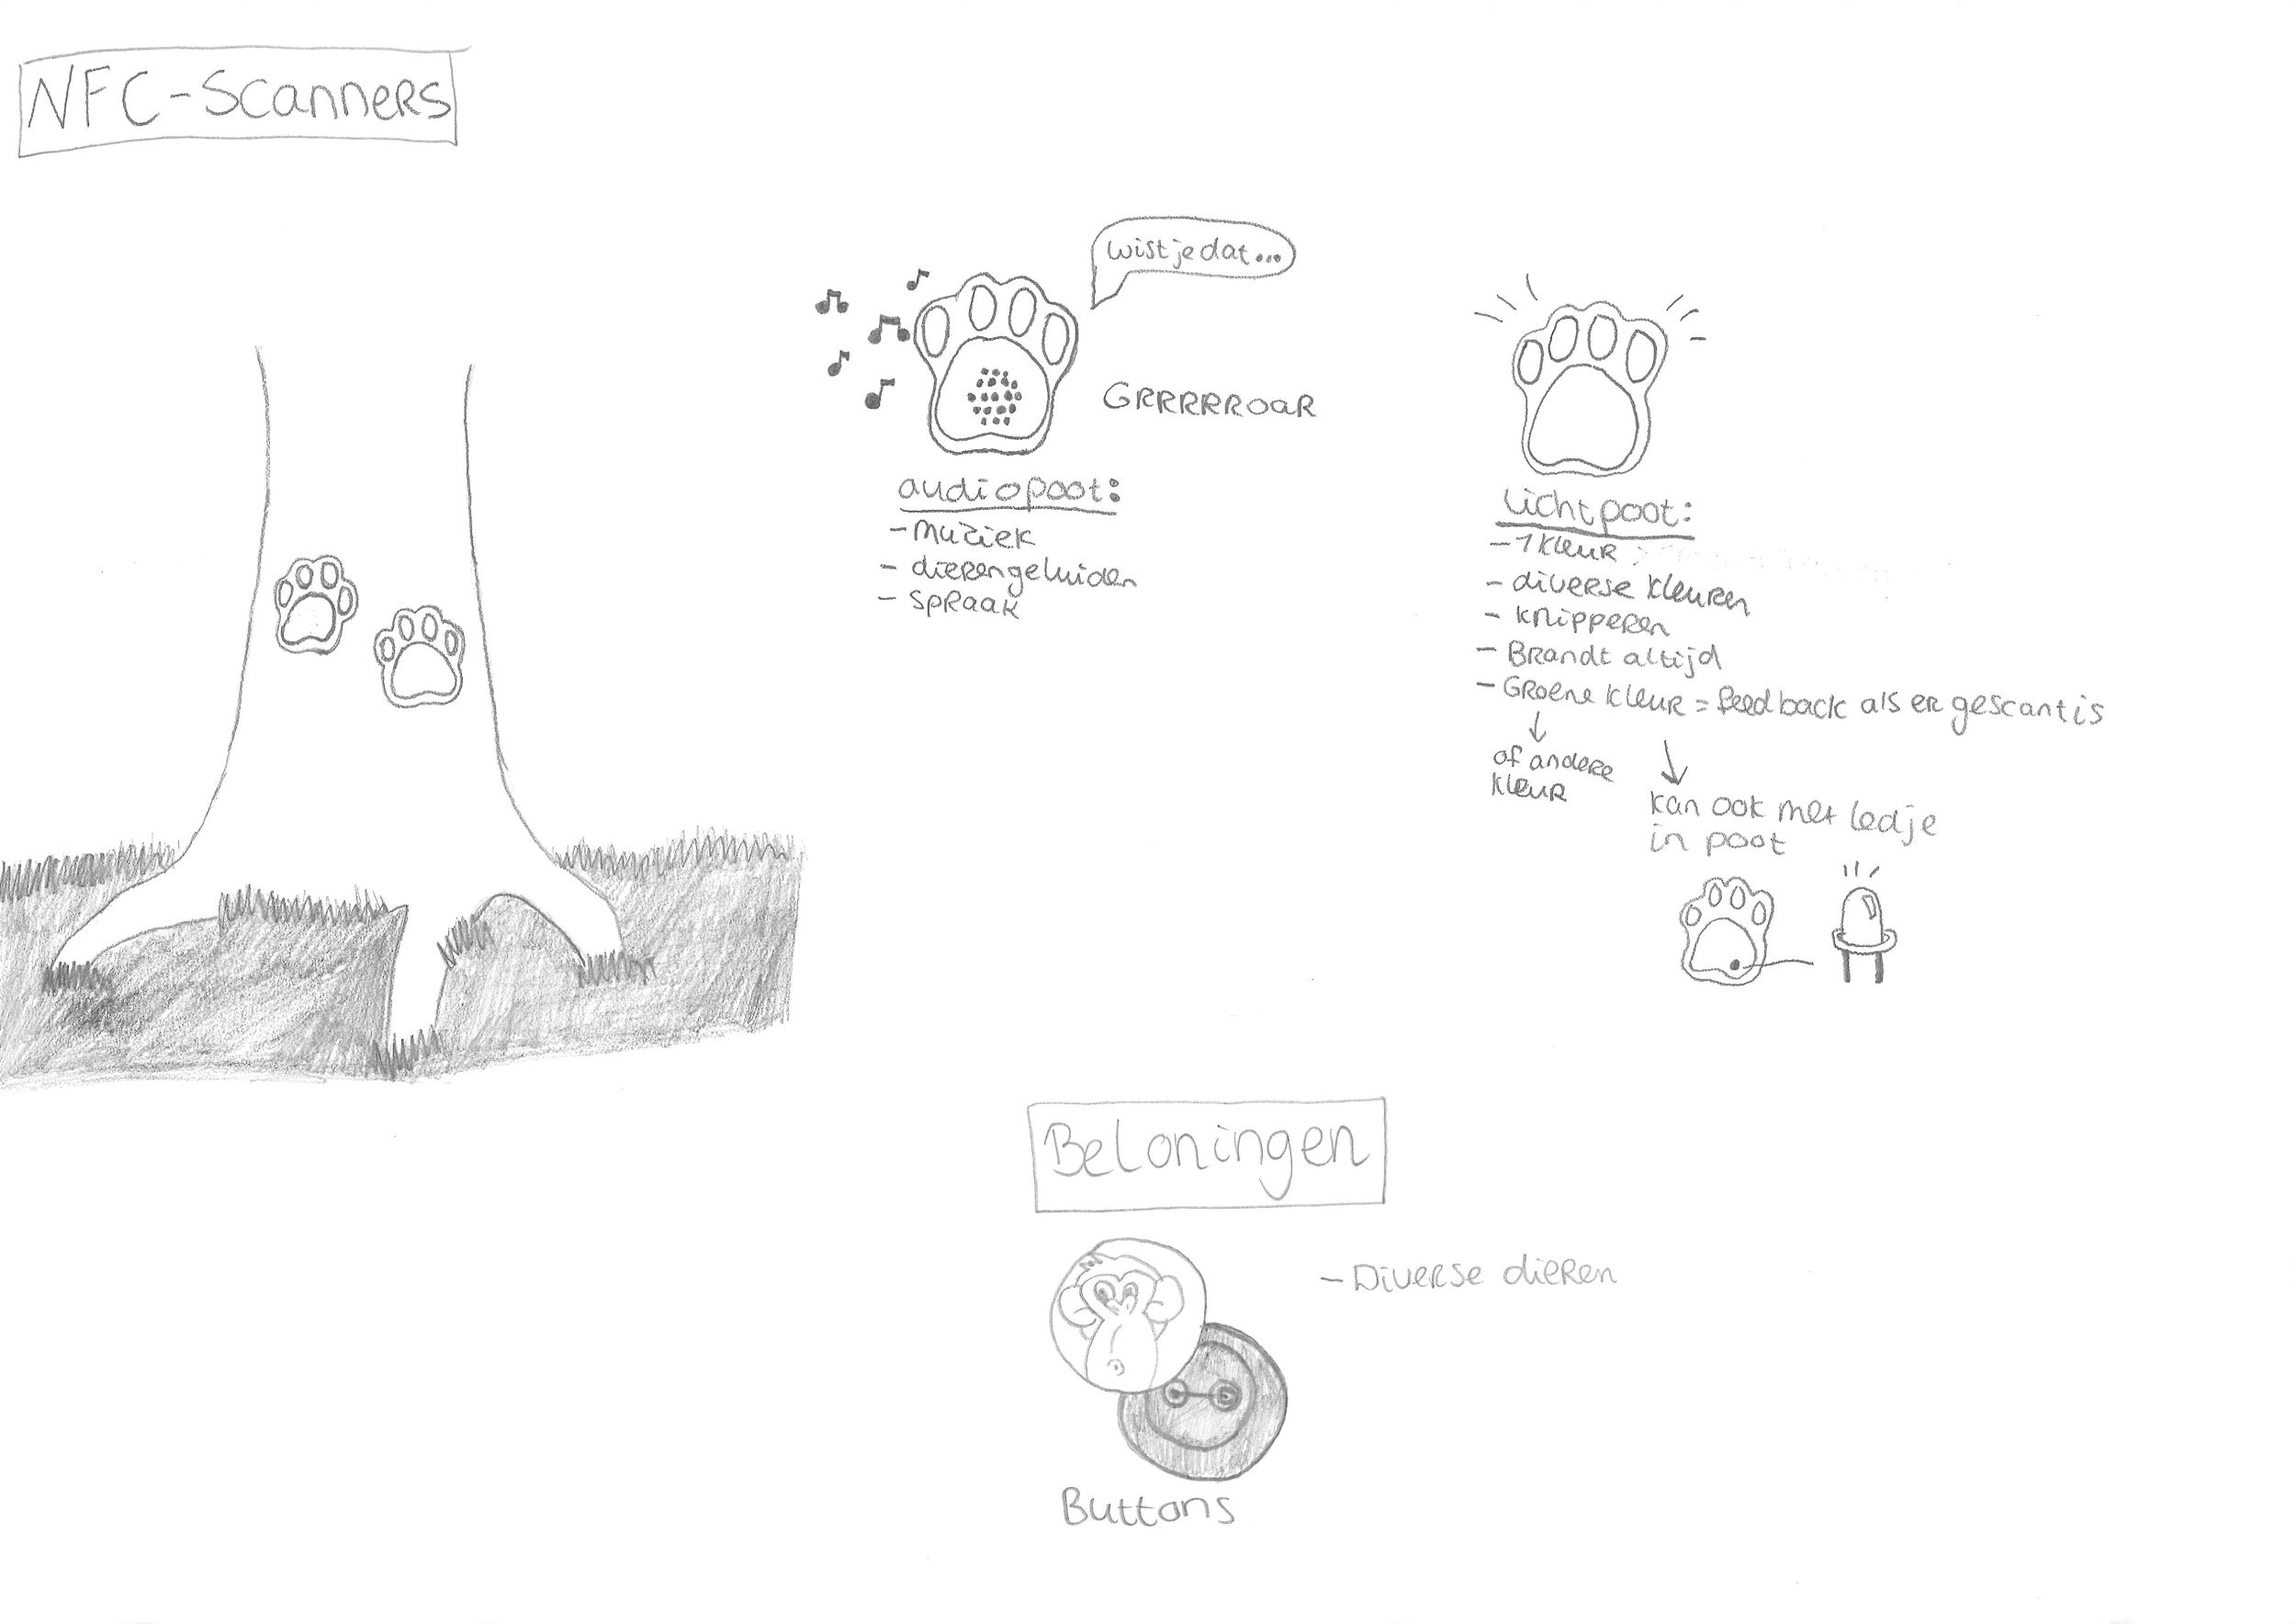 NFC-Scanners
wist je dat...
GRRRRROAR
audiopoot:
- muziek
- dierengeluiden
- spraak
Lichtpoot:
- 1 kleur
- diverse kleuren
- knipperen
- Brandt altijd
- Groene kleur = feedback als er gescant is
↓
of andere
kleur
kan ook met ledje
in poot
Beloningen
- Diverse dieren
Buttons